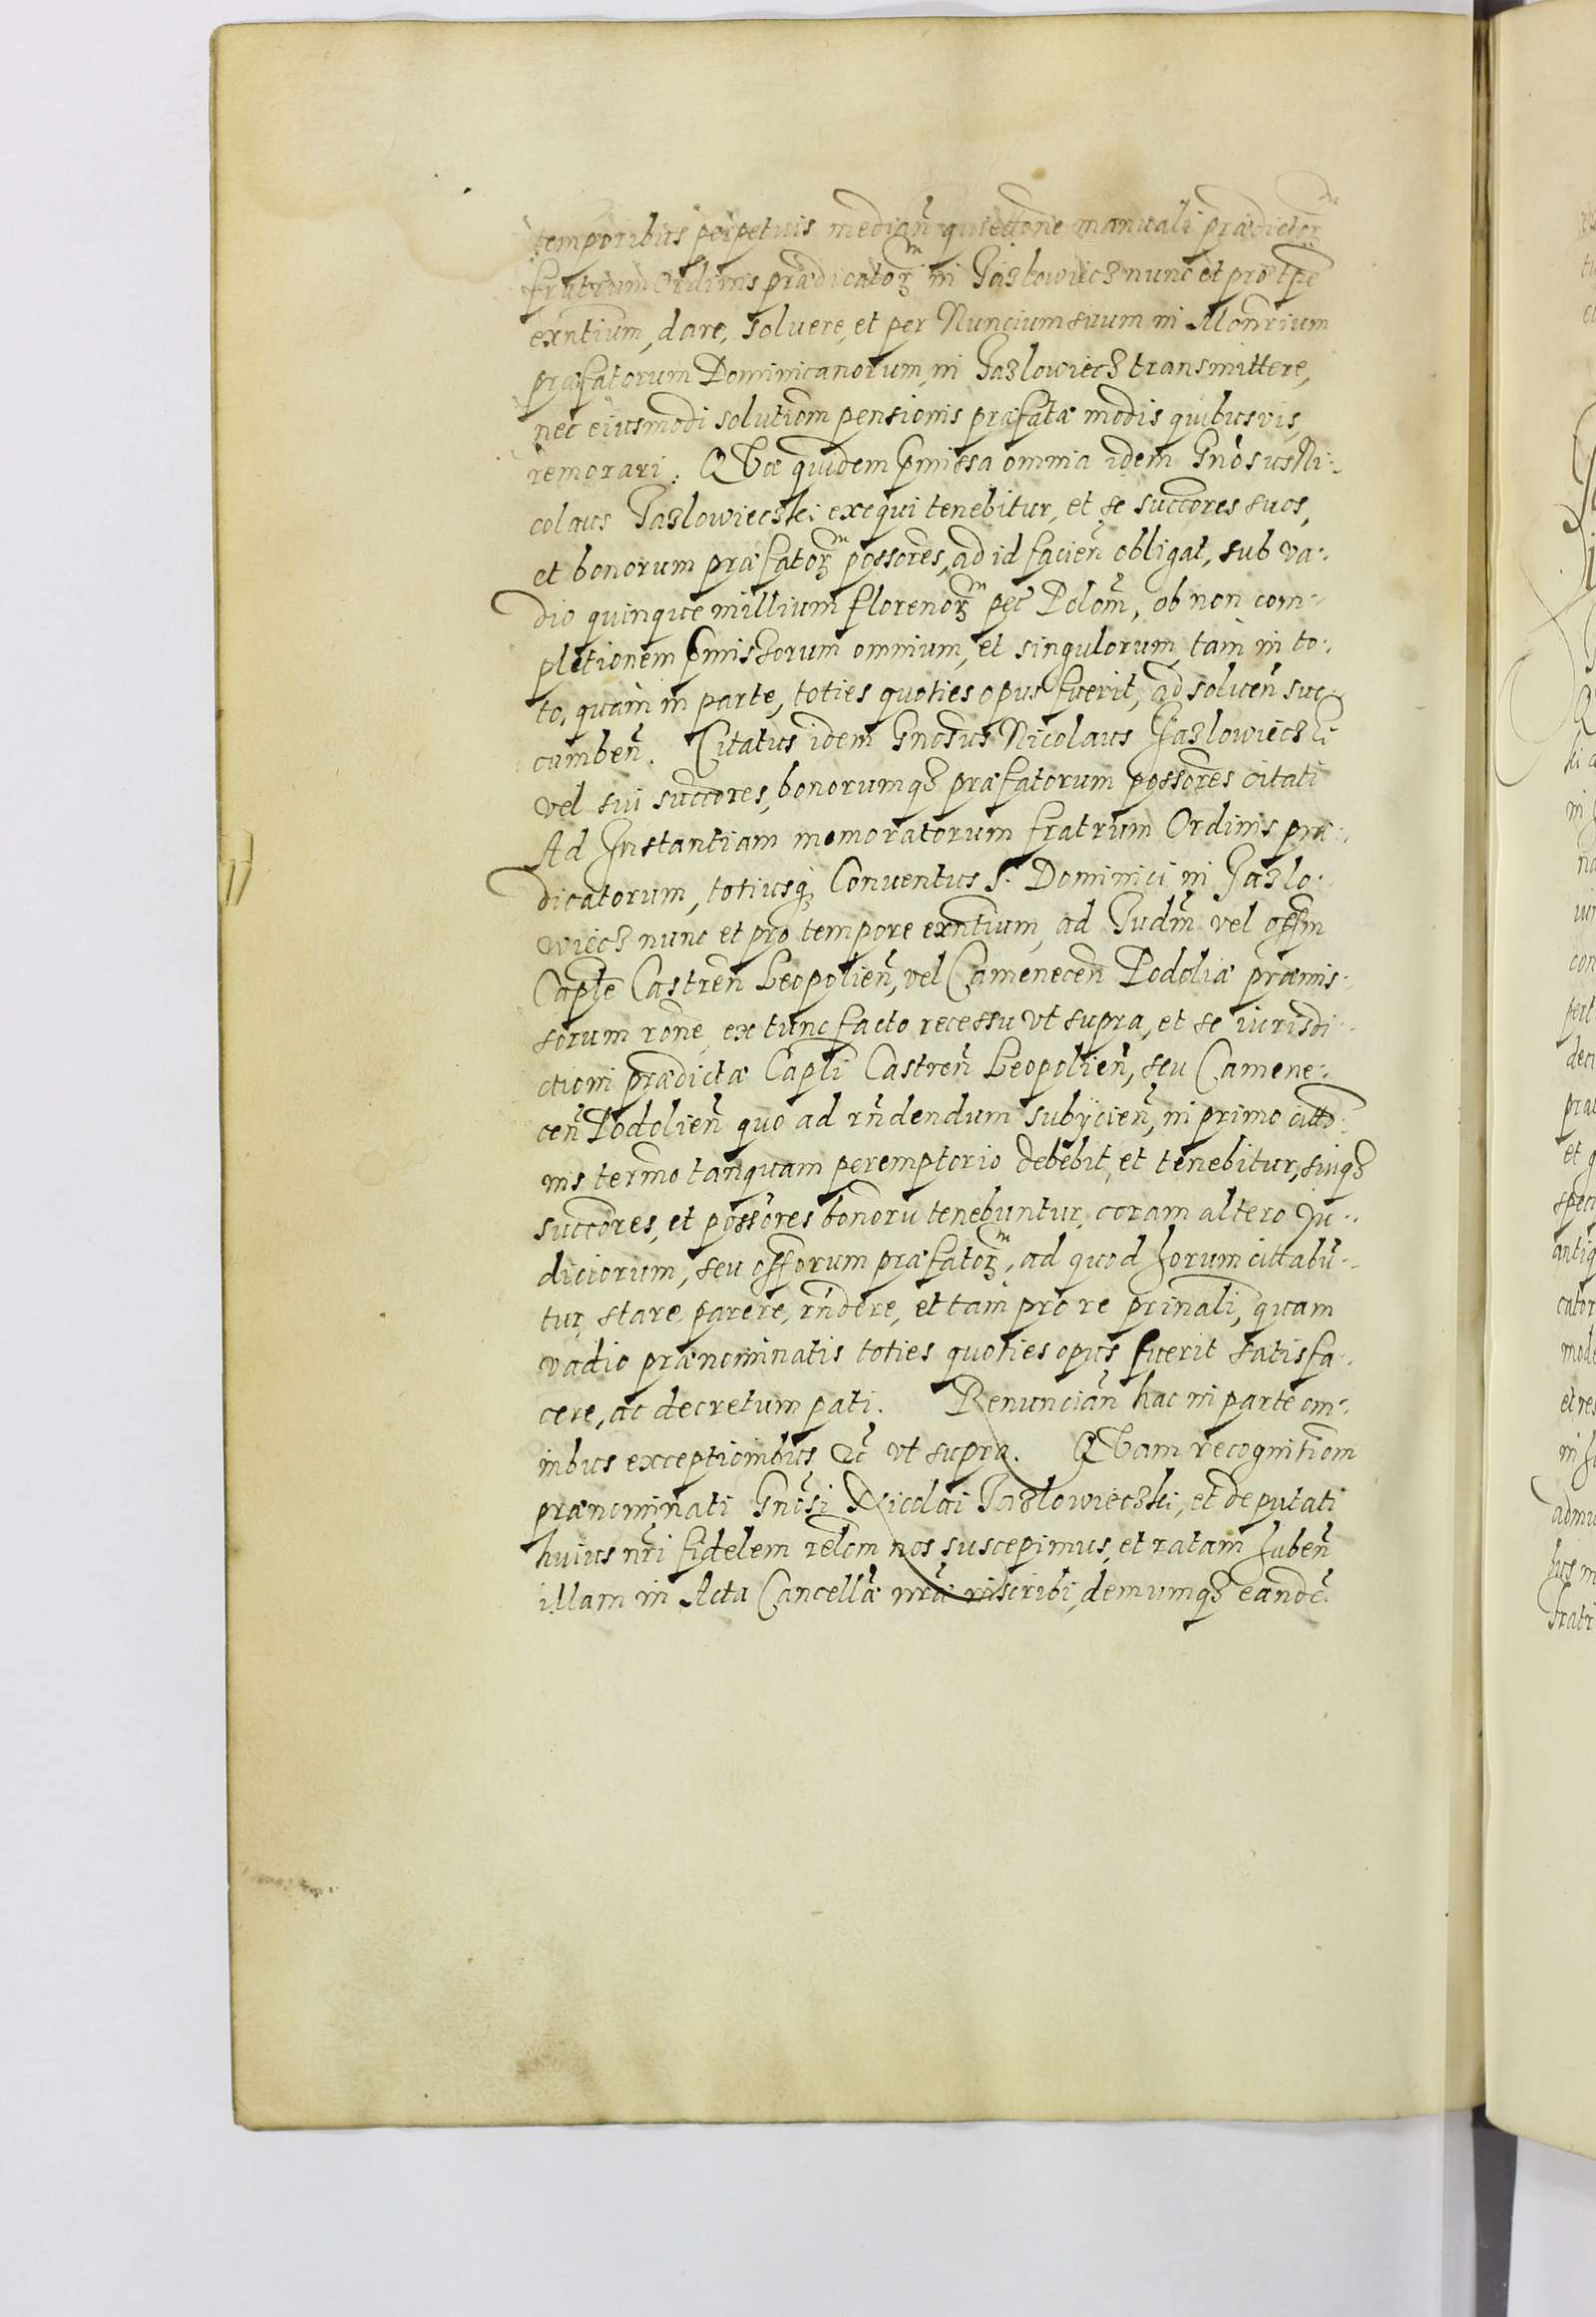 temporibus perpetuis median̄ quiettone manuali prædictor̄
fratrum Ordinis prædicatorȝ in Jazlowiecz nunc et pro tp̄e
exn̄tium, dare, soluere, et per Nuncium suum in Mon̄rium
præfatorum Dominicanorum, in Jazlowiecz transmittere,
nec eiusmodi solutiom̄ pensionis præfatæ modis quibusvis
remorari. Quæ quidem p̄missa omnia idem Gn̄osus Ni-
colaus Jazlowieczki exequi tenebitur, et se succ̄ores suos,
et bonorum præfatorȝ poss̄ores, ad id facien̄ obligat, sub va-
dio quinque millium florenorȝ pec̄ Polon̄, ob non com-
pletionem p̄missorum omnium, et singulorum, tam in to-
to, quam in parte, toties quoties opus fuerit, ad soluen̄ suc-
cumben̄. Citatus idem Gn̄osus Nicolaus Jazlowieczki
vel sui succ̄ores, bonorumqȝ præfatorum poss̄ores citati
Ad Instantiam memoratorum fratrum Ordinis præ-
dicatorum, totiusqȝ Conuentus S. Dominici in Jazlo-
wiecz nunc et pro tempore exn̄tium, ad Judm̄ vel off̄m
Capt̄le Castren̄ Leopolien̄, vel Camenecen̄ Podoliæ præmis-
sorum rōne, ex tunc facto recessu vt supra, et se iurisdi-
ctioni prædictæ Capt̄li Castren̄ Leopolien̄, seu Camene-
cen̄ Podolien̄ quo ad rn̄dendum subÿcien̄, in primo citt̄o-
nis term̄o tanquam peremptorio debebit, et tenebitur, suiqȝ
succ̄ores, et poss̄ores bonorū tenebuntur, coram altero Ju-
diciorum, seu off̄orum præfatorȝ, ad quod horum cittabū-
tur, stare, parere, rn̄dere, et tam pro re prin̄ali, quam
vadio prænominatis toties quoties opus fuerit satisfa-
cere, ac decretum pati. Renuncian̄ hac in parte om-
nibus exceptionibus &c̄ vt supra. Quam recognitiom̄
prænominati Gn̄osi Nicolai Jazlowieczki, et deputati
huius nr̄i fidelem relōm nos suscepimus, et ratam haben̄
illam in Acta Cancellā nr̄a inscribi, demumqȝ eandē